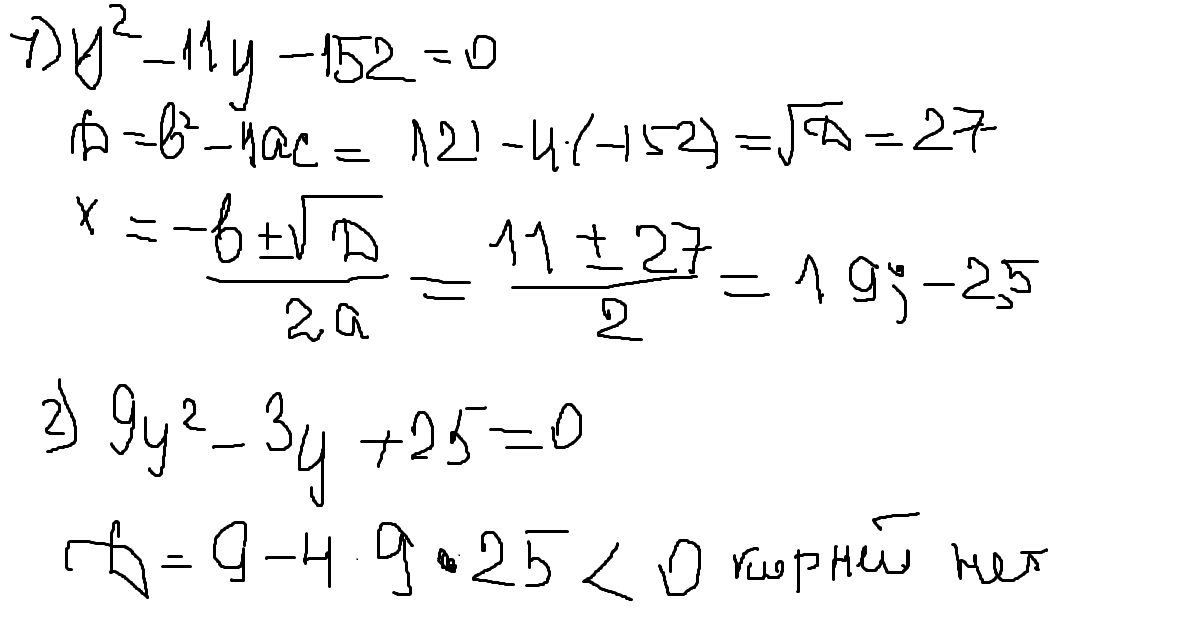 1) y² - 11y - 152 = 0
D = b² - 4ac = 121 - 4·(-152) = √D = 27
x = (-b ± √D) / 2a = (11 ± 27) / 2 = 19; -2,5
2) 9y² - 3y + 25 = 0
D = 9 - 4 · 9 · 25 < 0 корней нет